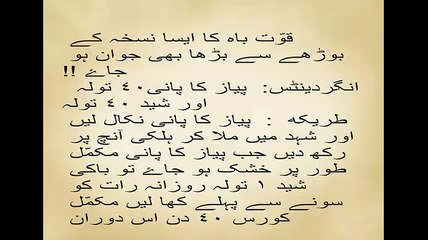 قوّت باہ کا ایسا نسخہ کے
بوڑھے سے بڑھا بھی جوان ہو
جاۓ !!
انگردینٹس: پیاز کا پانی٤٠ تولہ
اور شید ٤٠ تولہ
طریکہ : پیاز کا پانی نکال لیں
اور شہد میں ملا کر ہلکی آنچ پر
رکھ دیں جب پیاز کا پانی مکمّل
طور پر خشک ہو جاۓ تو باکی
شید ١ تولہ روزانہ رات کو
سونے سے پہلے کھا لیں مکمّل
کورس ٤٠ دن اس دوران